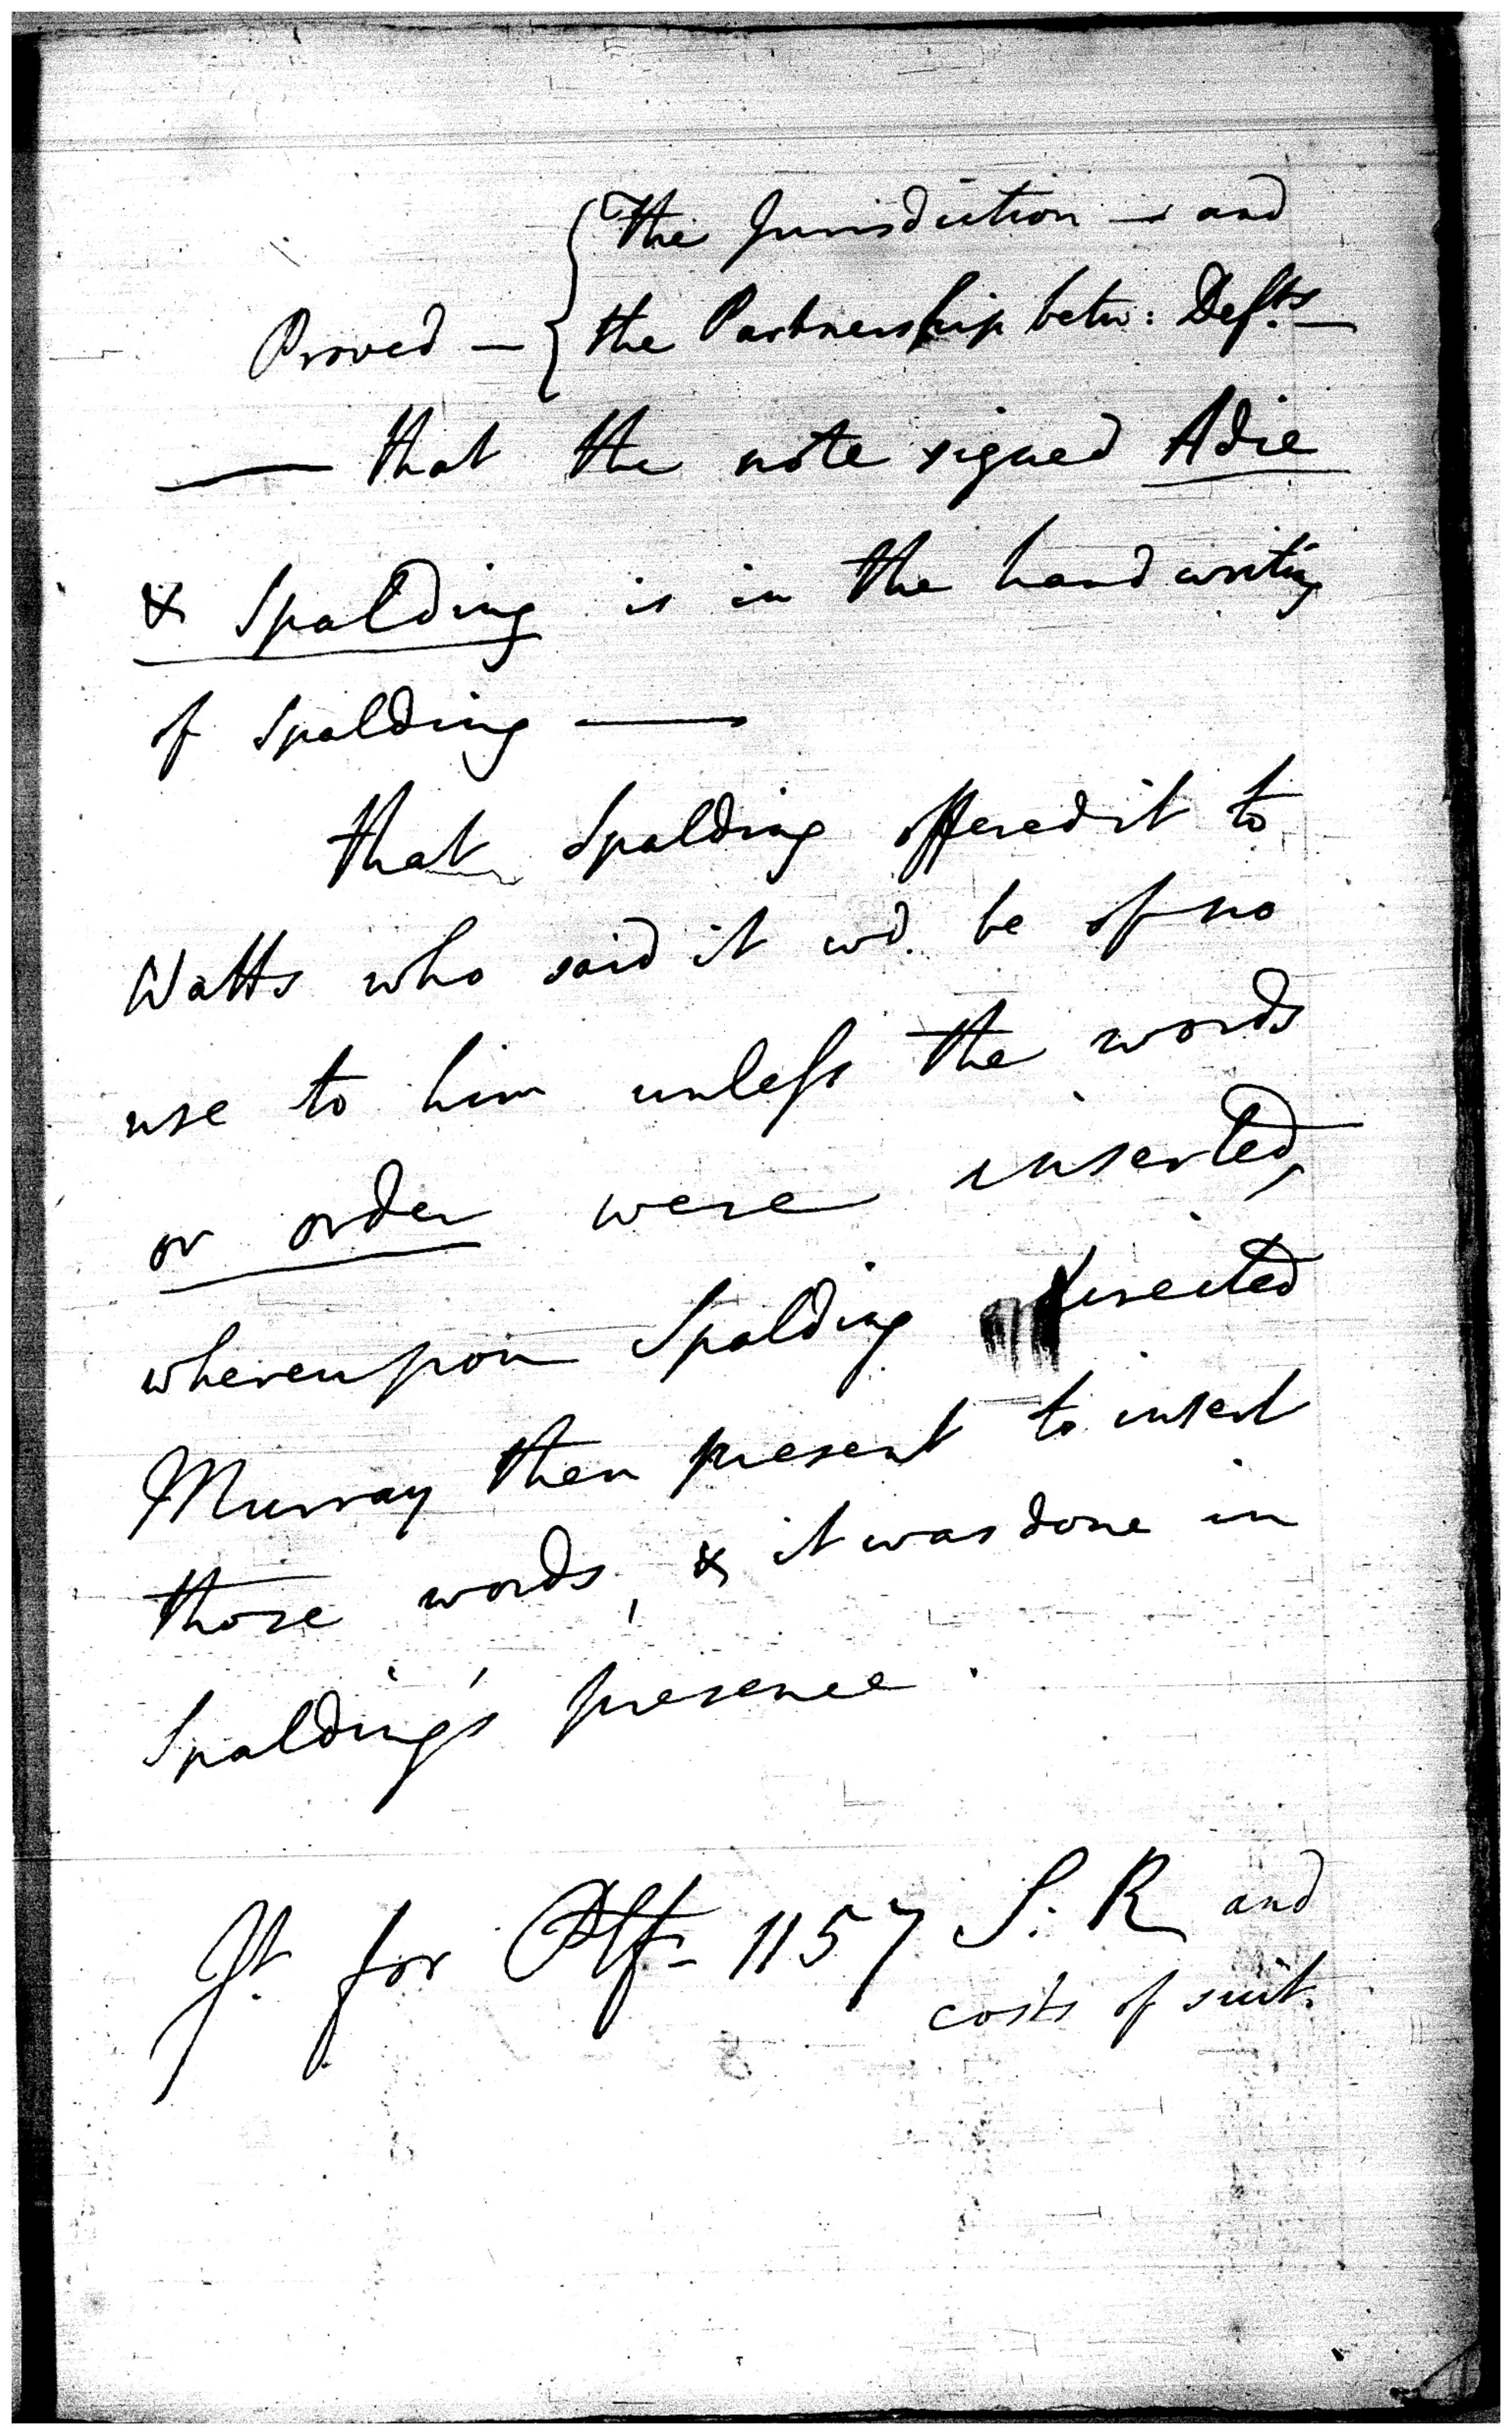 The Jurisdiction — and
Proved — { the Partnership betw: Defts —
— that the note signed Adie
& Spalding is in the hand writing
of Spalding —
that Spalding offered it to
Watts who said it wd. be of no
use to him unless the words
or order were inserted,
whereupon Spalding directed
Murray then present to insert
those words, & it was done in
Spalding's presence.
Jt. for Plff - 1157 S. R and
costs of suit.